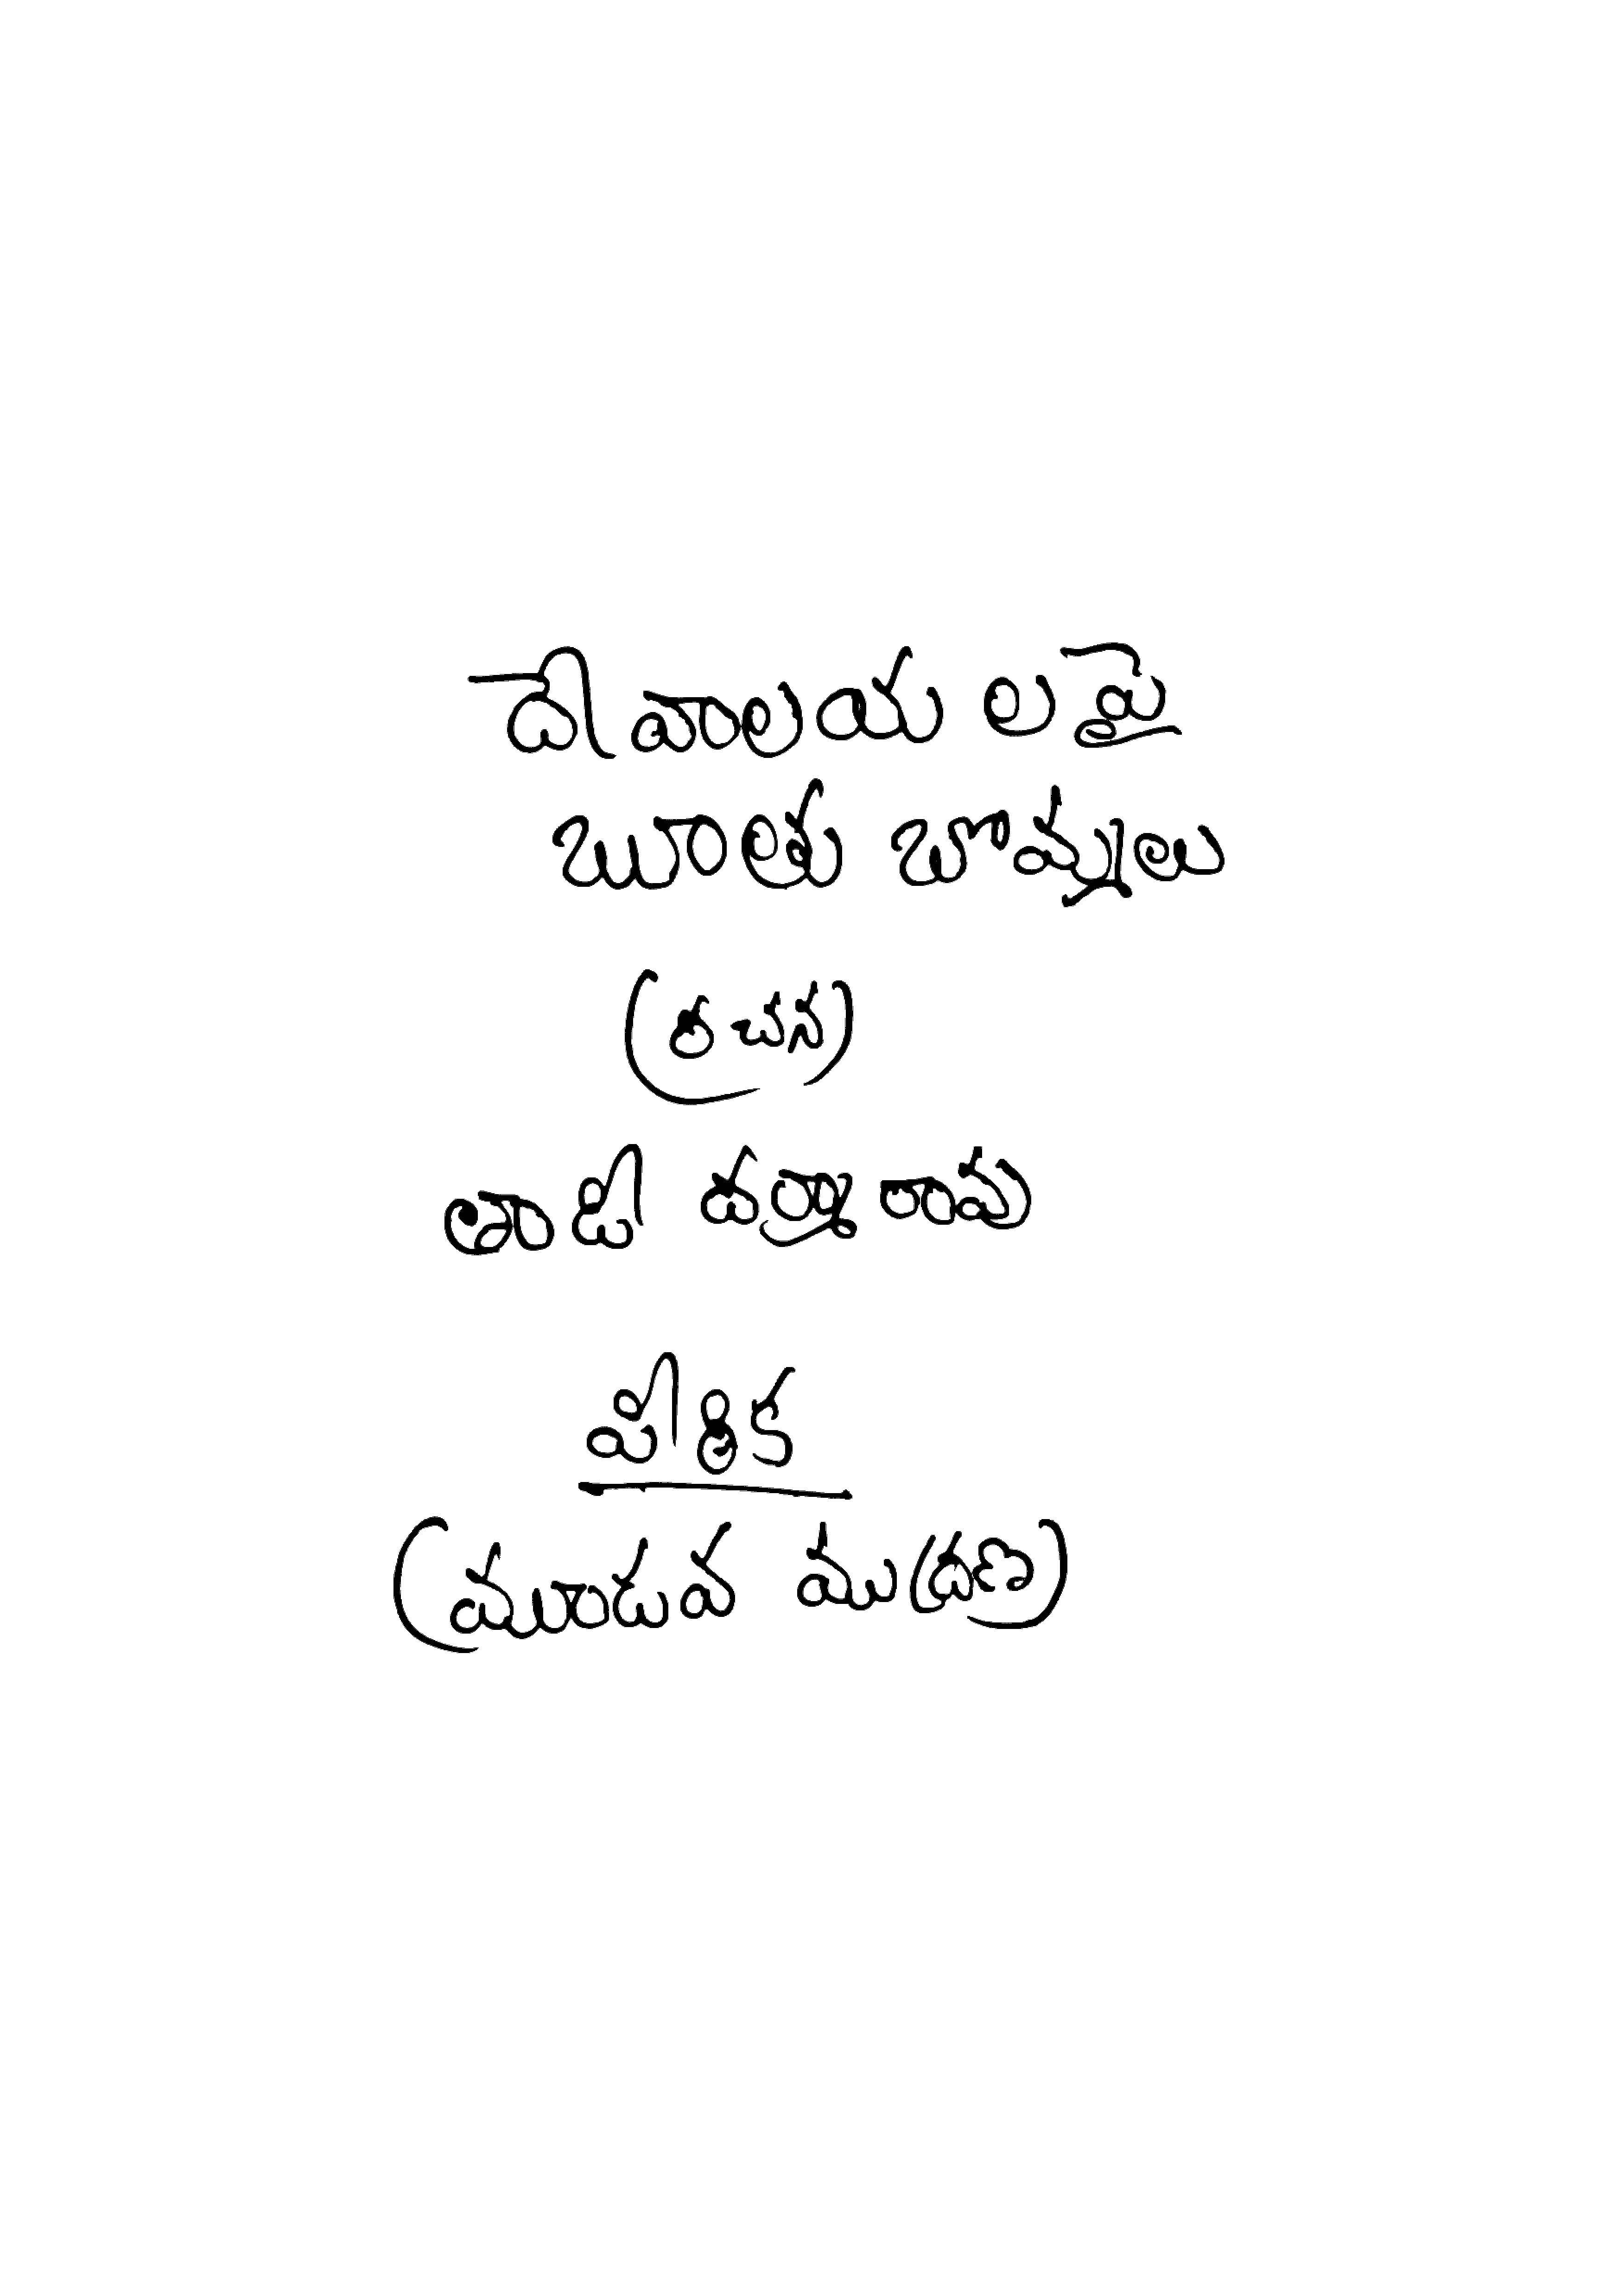 దేవాలయలపై
బూతు బొమ్మలు
(రచన)
తాపీ ధర్మారావు
పీఠిక
(మూడువ ముద్రణ)